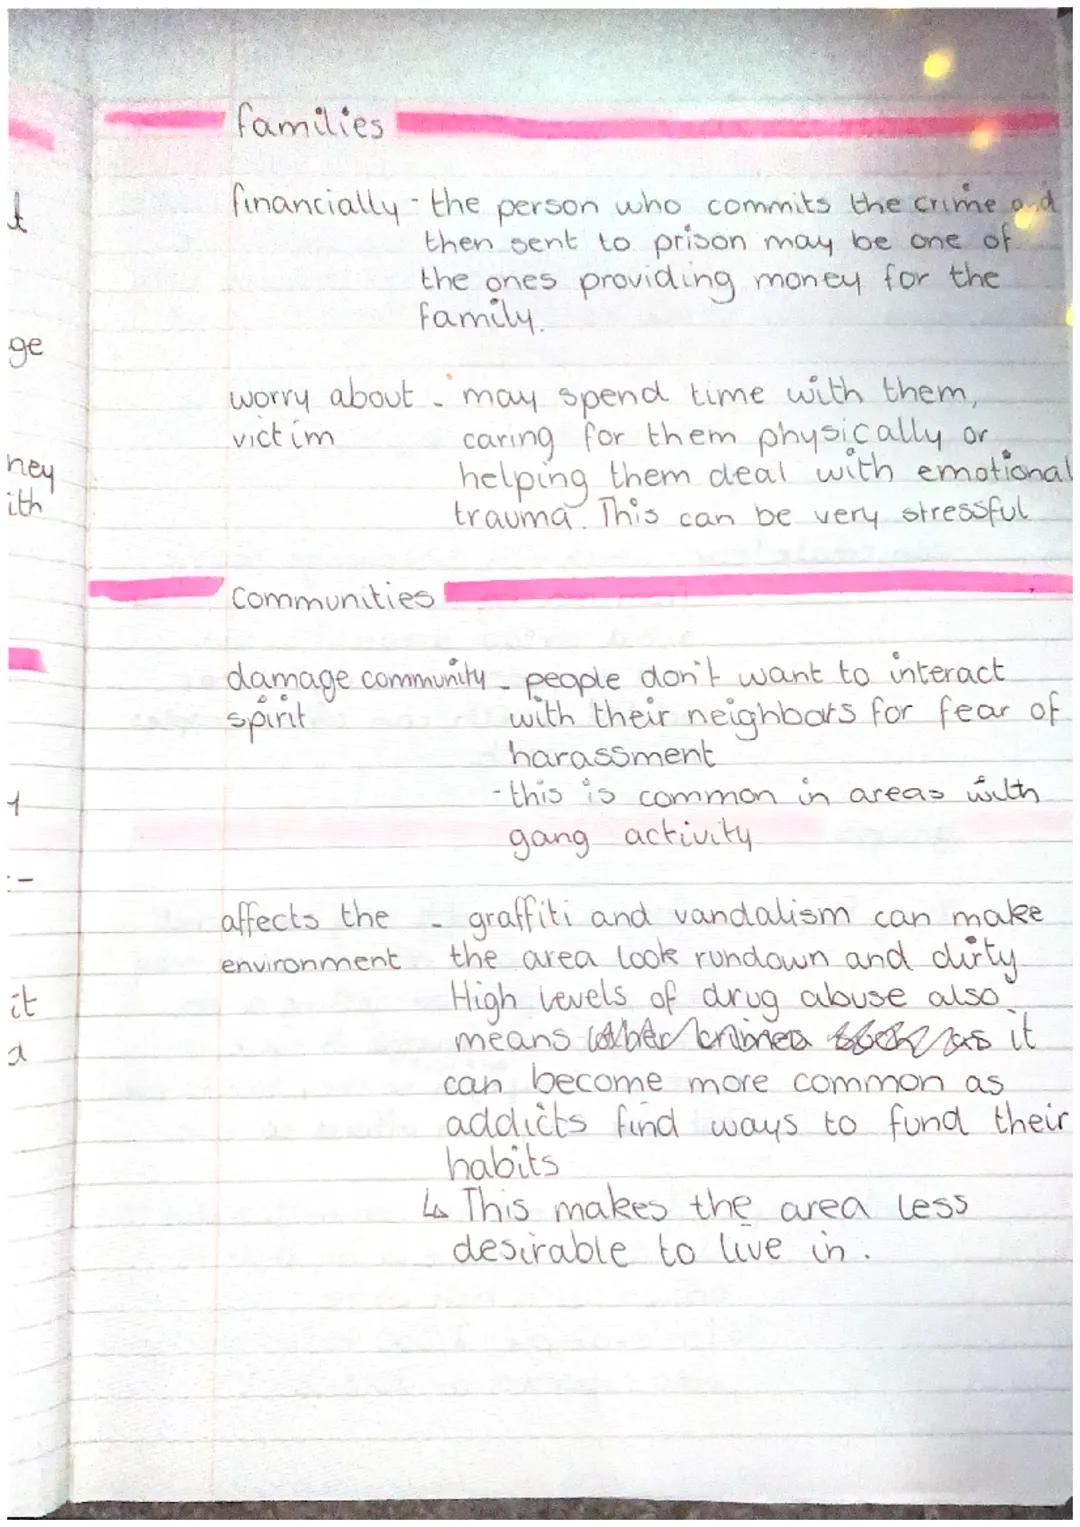 families
financially - the person who commits the crime and
then sent to prison may be one of
the ones providing money for the
family.
worry about - may spend time with them,
victim caring for them physically or
helping them deal with emotional
trauma. This can be very stressful
Communities
damage community - people don't want to interact
spirit with their neighbors for fear of
harassment
- this is common in areas with
gang activity
affects the - graffiti and vandalism can make
environment the area look rundown and dirty
High levels of drug abuse also
means it
can become more common as
addicts find ways to fund their
habits
↳ This makes the area less
desirable to live in.
ge
hey
ith
it